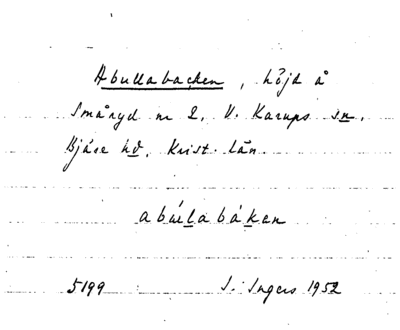 Abullabacken, höjd å
Smäryd nr 2, V. Karups sn,
Bjäre hd, Krist. län.
abúlabáken
5199 I. Ingers 1952